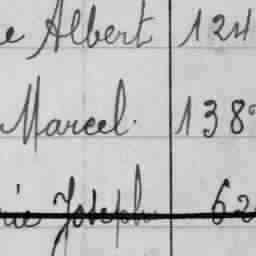 e Albert 124
Marcel. 138
rie Joseph 62